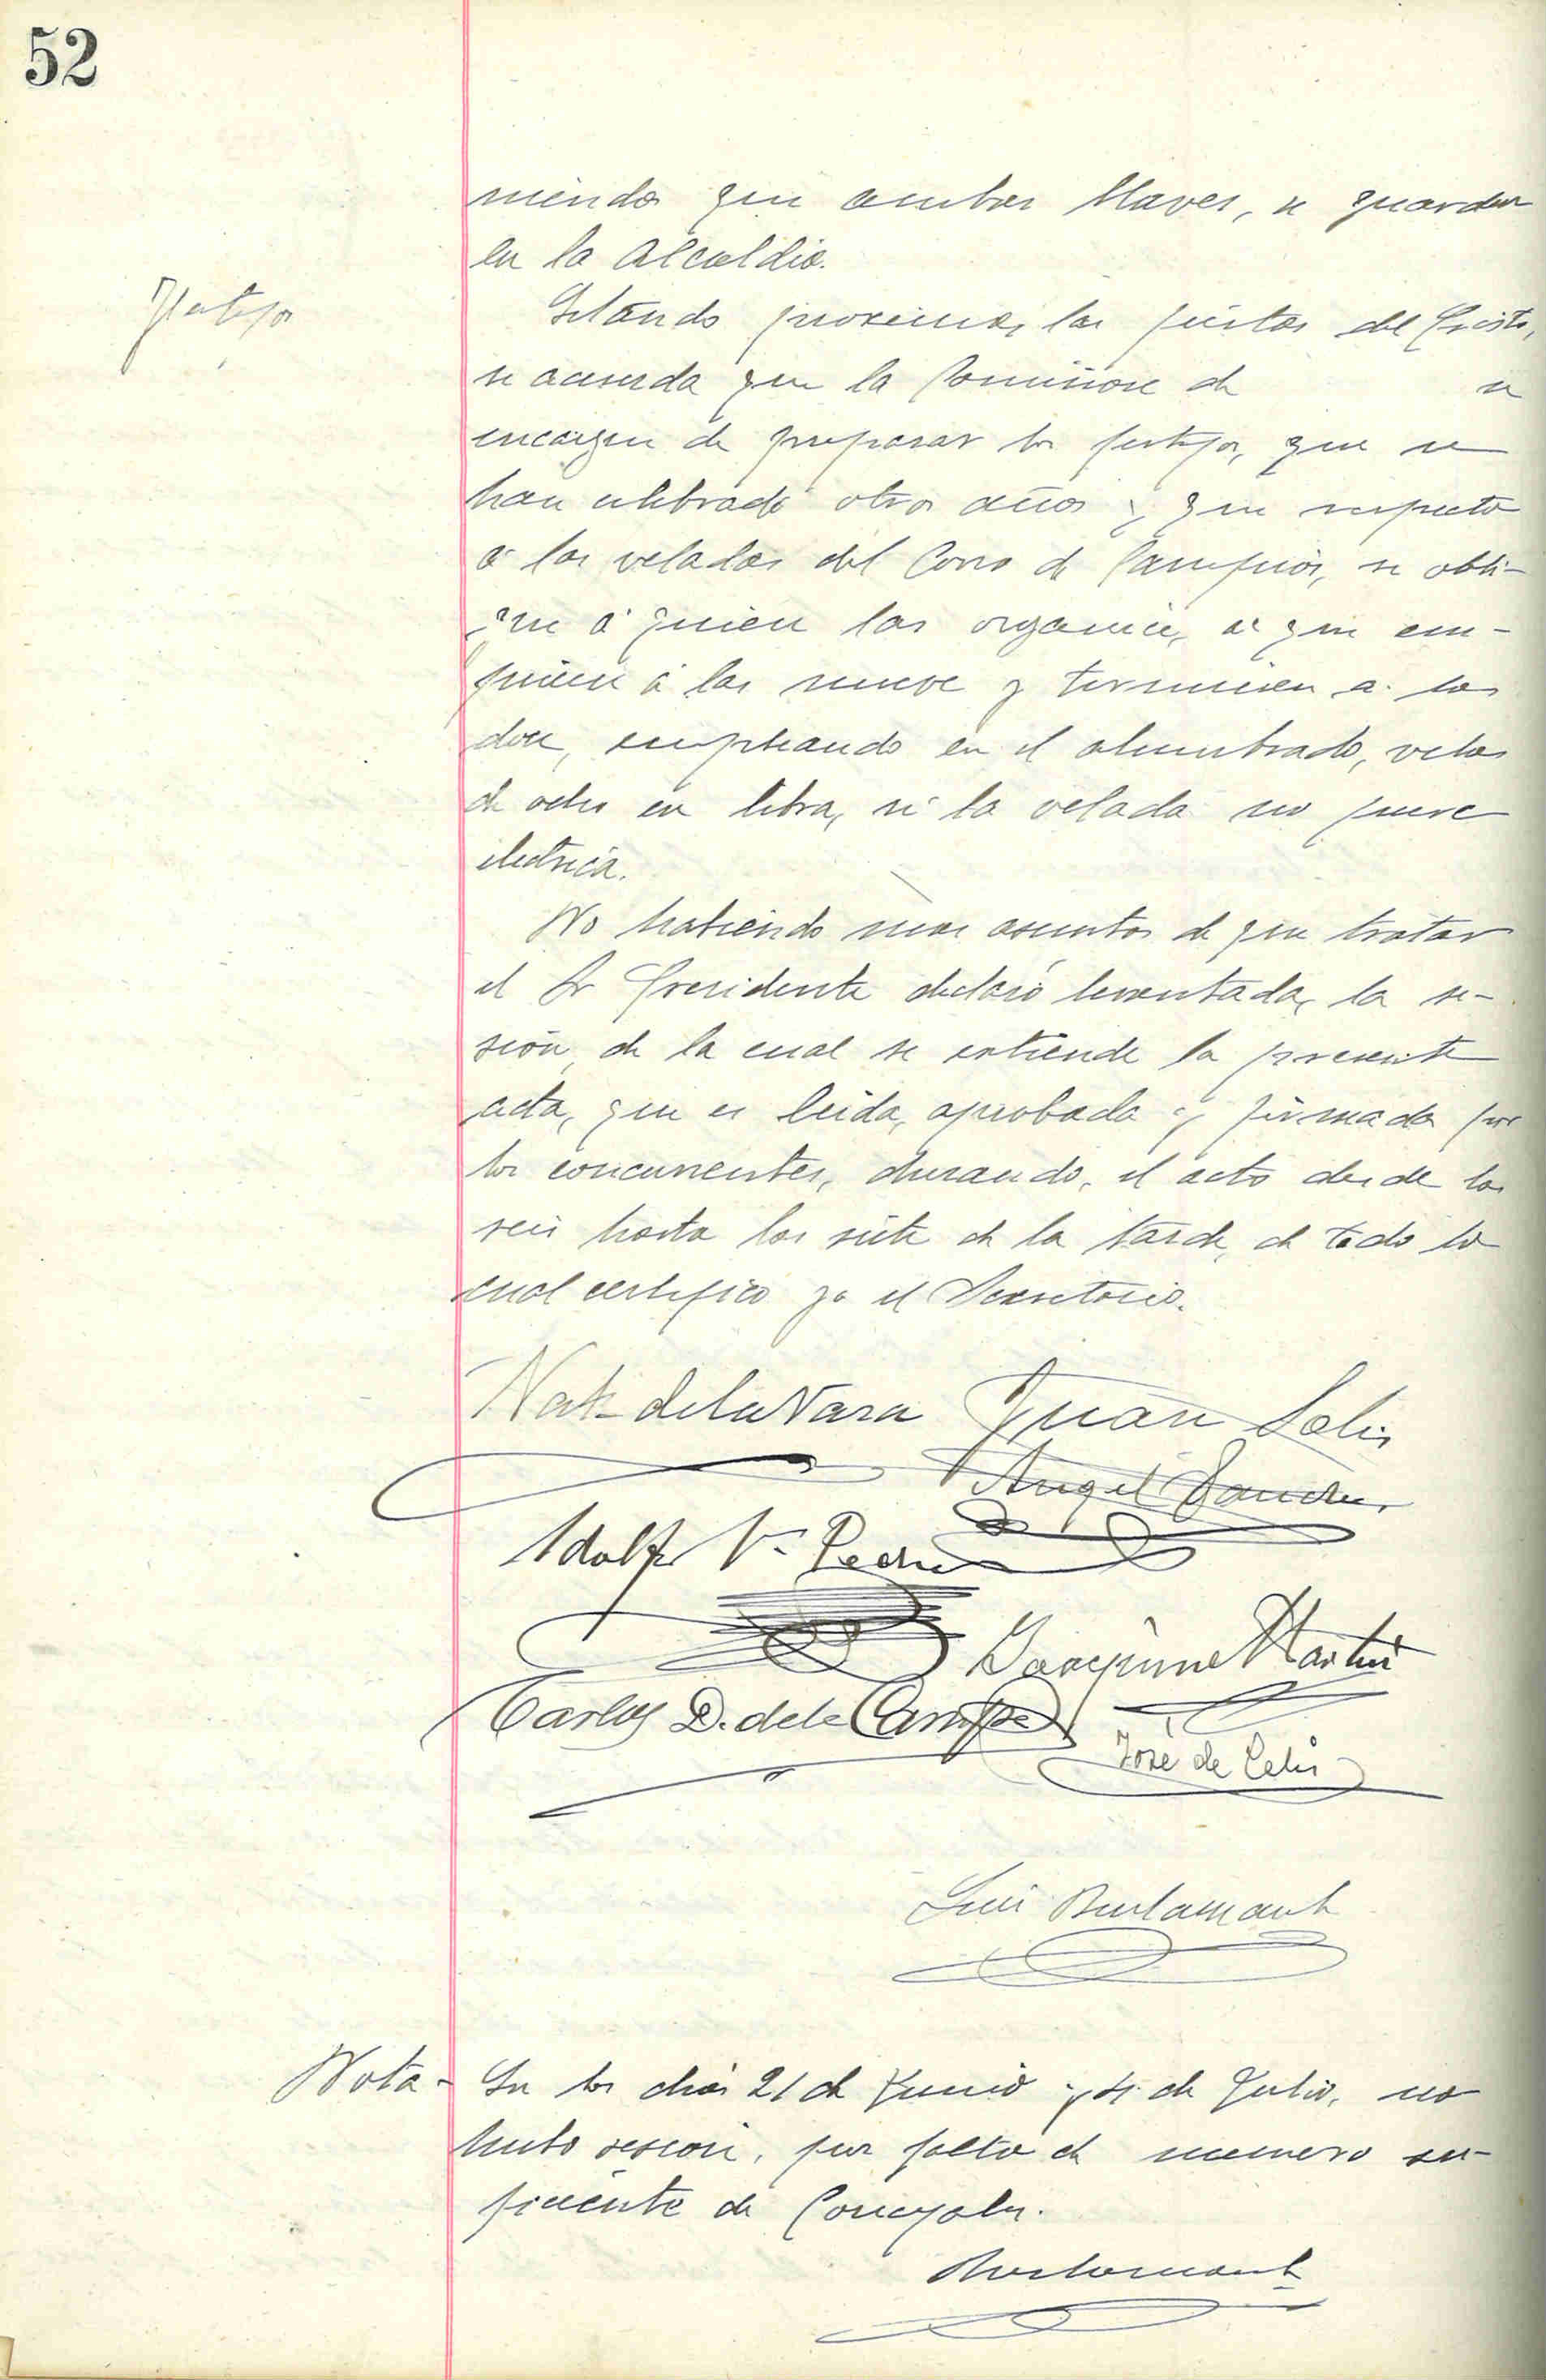 52
niendo que ambas llaves, se guarden
en la Alcaldia.
Festejos
Estando proximas las fiestas del Cristo,
se acuerda que la Comisione de se
encargue de preparar los festejos, que se
han celebrado otros años y que respecto
a las veladas del Corro de Campios, se obli-
gue á quien las organice, a que em-
piecen á las nueve y terminen a las
doce, empleando en el alumbrado, velas
de ocho en libra, si la velada no fuere
electrica.
No habiendo mas asuntos de que tratar
el Sr Presidente declaró levantada, la se-
sión de la cual se extiende la presente
acta, que es leida, aprobada y firmada por
los concurrentes, durando, el acto desde las
seis hasta las siete de la tarde, de todo lo
cual certifico yo el Secretario.
Nat. de la Vara Juan Solis
Angel Sanchez
Adolfo V. Pedro
Joaquin Martin
Carlos D. de la Campa
José de Celis
Luis Bustamante
Nota - En los dias 21 de Junio y 4 de Julio, no
hubo sesion, por falta de numero su-
ficiente de Concejales.
Bustamante